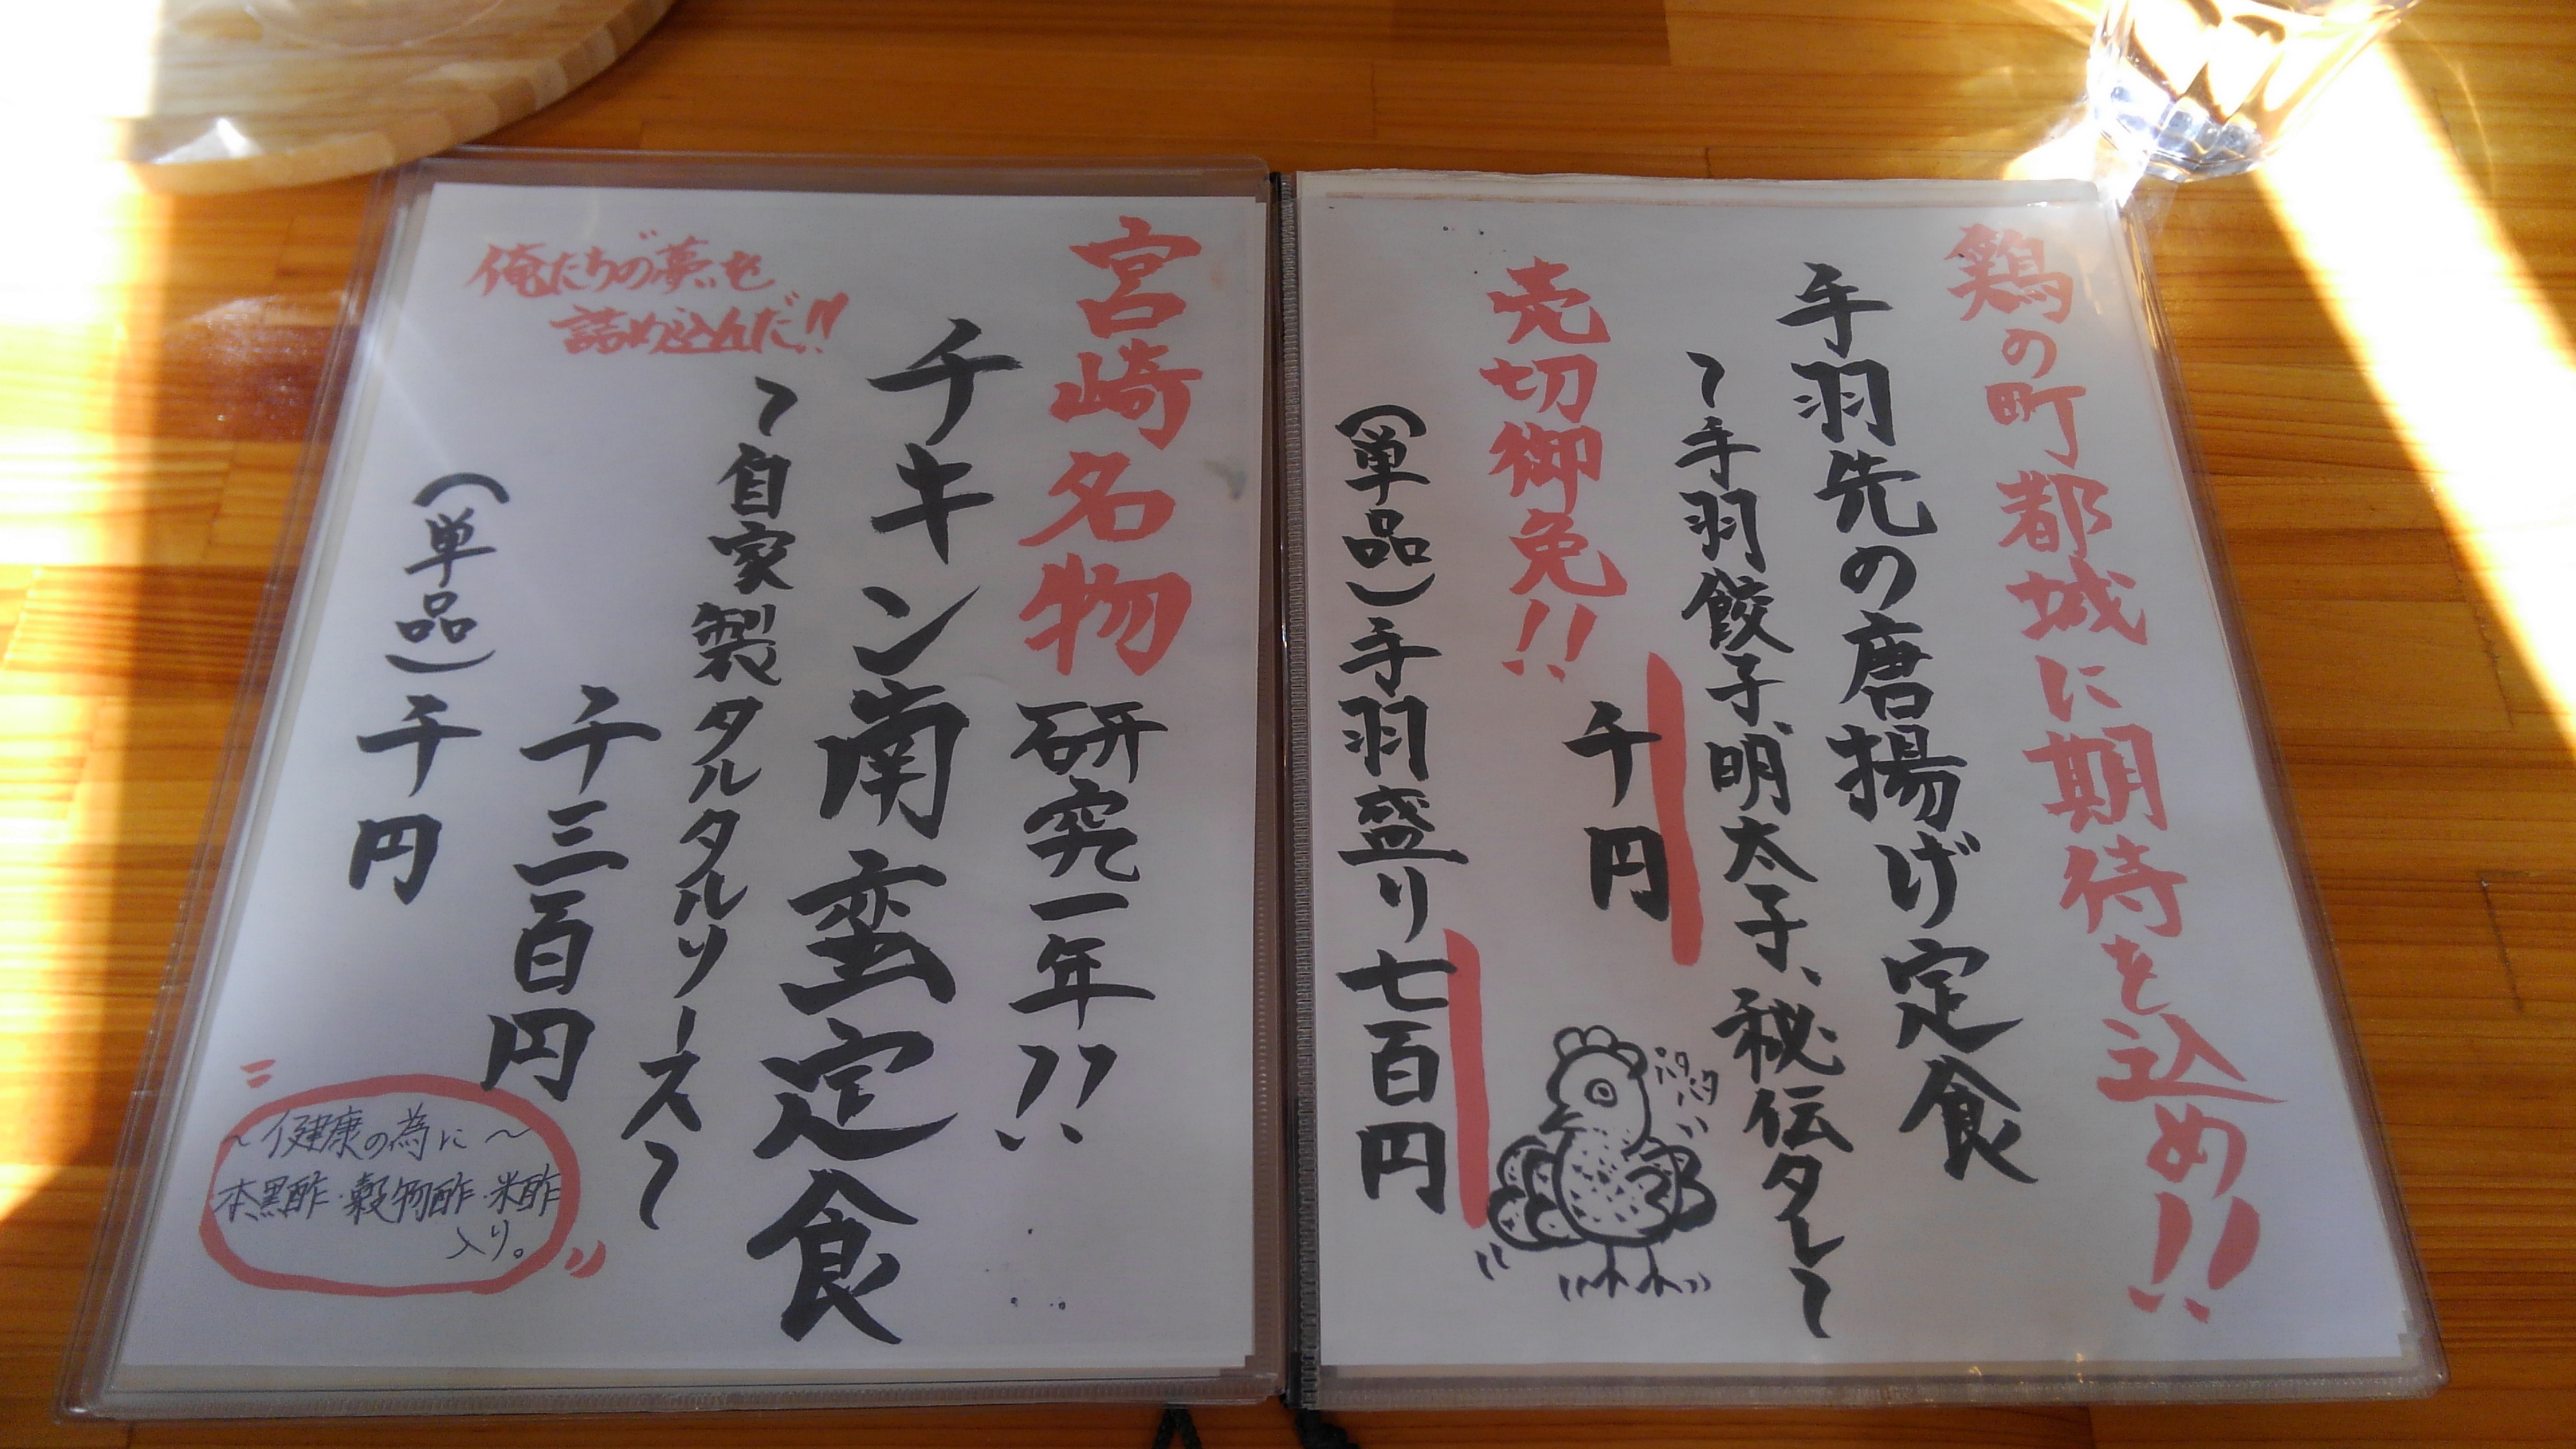 鶏の町都城に期待を込め!!
手羽先の唐揚げ定食
〜手羽餃子、明太子、秘伝タレ〜
千円
売切御免!!
(単品)手羽盛り七百円
パタパタ
宮崎名物研究一年!!
チキン南蛮定食
〜自家製タルタルソース〜
俺たちの夢を
詰め込んだ!!
千三百円
(単品)千円
〜健康の為に〜
本黒酢・穀物酢・米酢
入り。